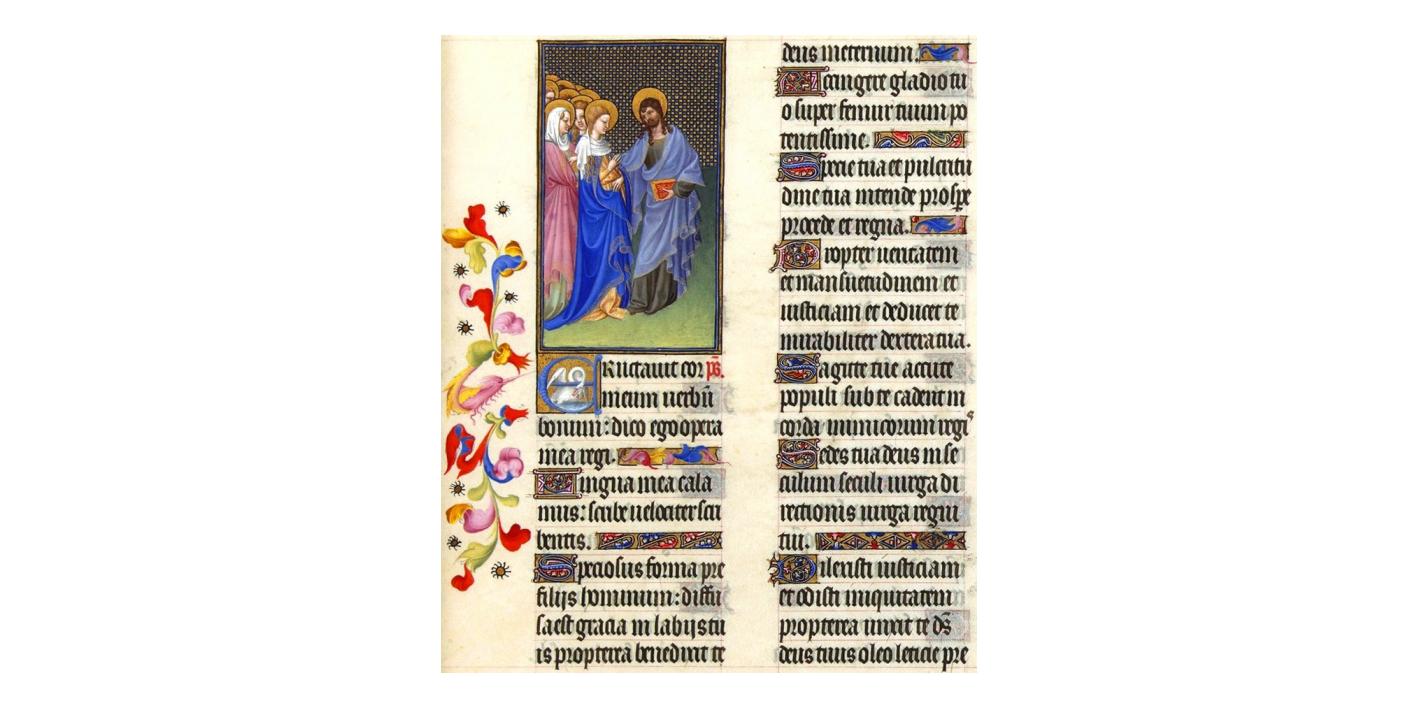 Eructauit cor ps.
meum uerbū
bonum: dico ego opera
mea regi.
Lingua mea cala
mus: scribe uelociter scri
bentis.
Speciosus forma pre
filijs hominum: diffu
sa est gracia in labijs tu
is propterea benedixit te
deus in eternum.
Accingere gladio tu
o super femur tuum po
tentissime.
Specie tua et pulcritu
dine tua intende prospe
procede et regna.
Propter ueritatem
et mansuetudinem et
iusticiam et deducet te
mirabiliter dextera tua.
Sagitte tue accute
populi sub te cadent in
corda inimicorum regis
Sedes tua deus in se
culum seculi uirga di
rectionis uirga regni
tui.
Dilexisti iusticiam
et odisti iniquitatem
propterea unxit te ds̄
deus tuus oleo leticie pre